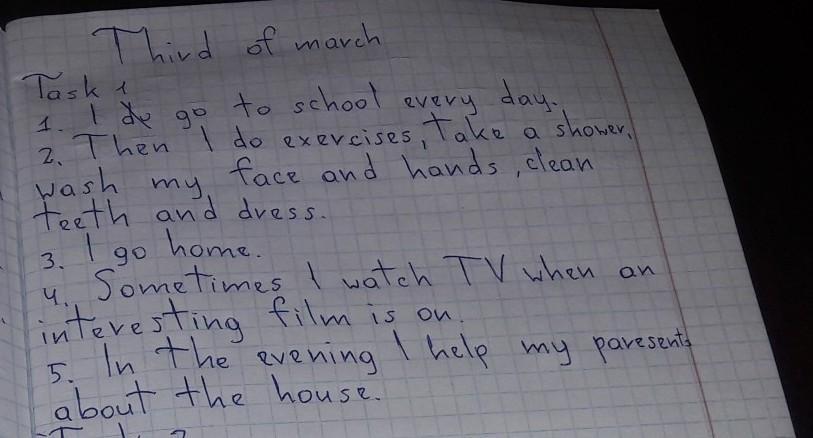 Third of march
Task 1
1. I go to school every day.
2. Then I do exercises, take a shower,
wash my face and hands, clean
teeth and dress.
3. I go home.
4. Sometimes I watch TV when an
interesting film is on.
5. In the evening I help my paresents
about the house.